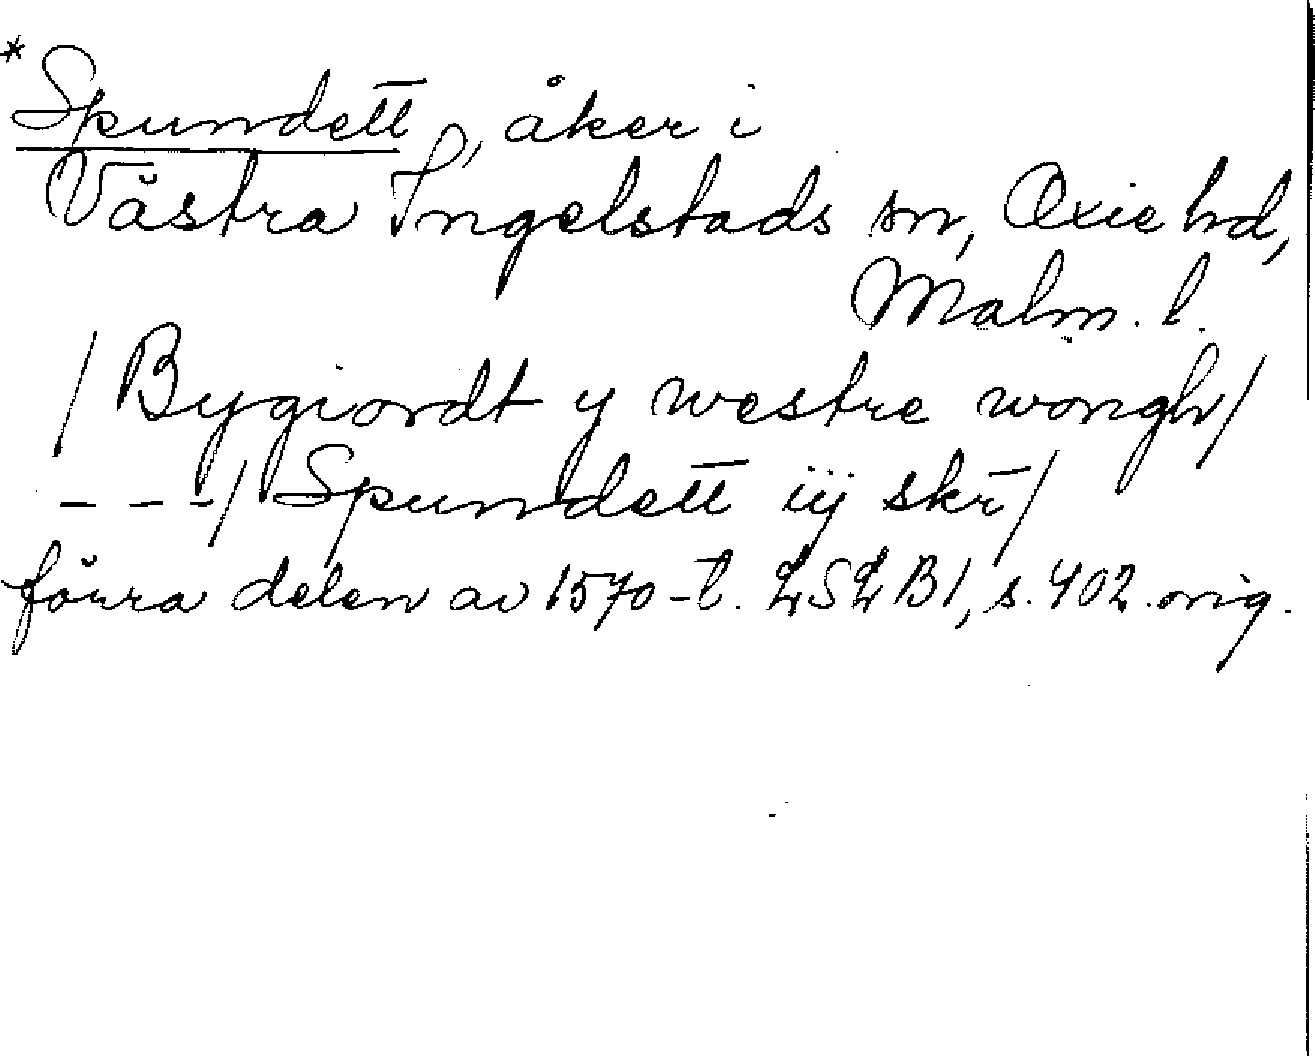 *Spundett, åker i
Västra Ingelstads sn, Oxie hd,
Malm. l.
/ Bygiordt y westre wongh/
- - -/ Spundett iij skr̄/
förra delen av 1570-t. LSLB1, s. 402 orig.